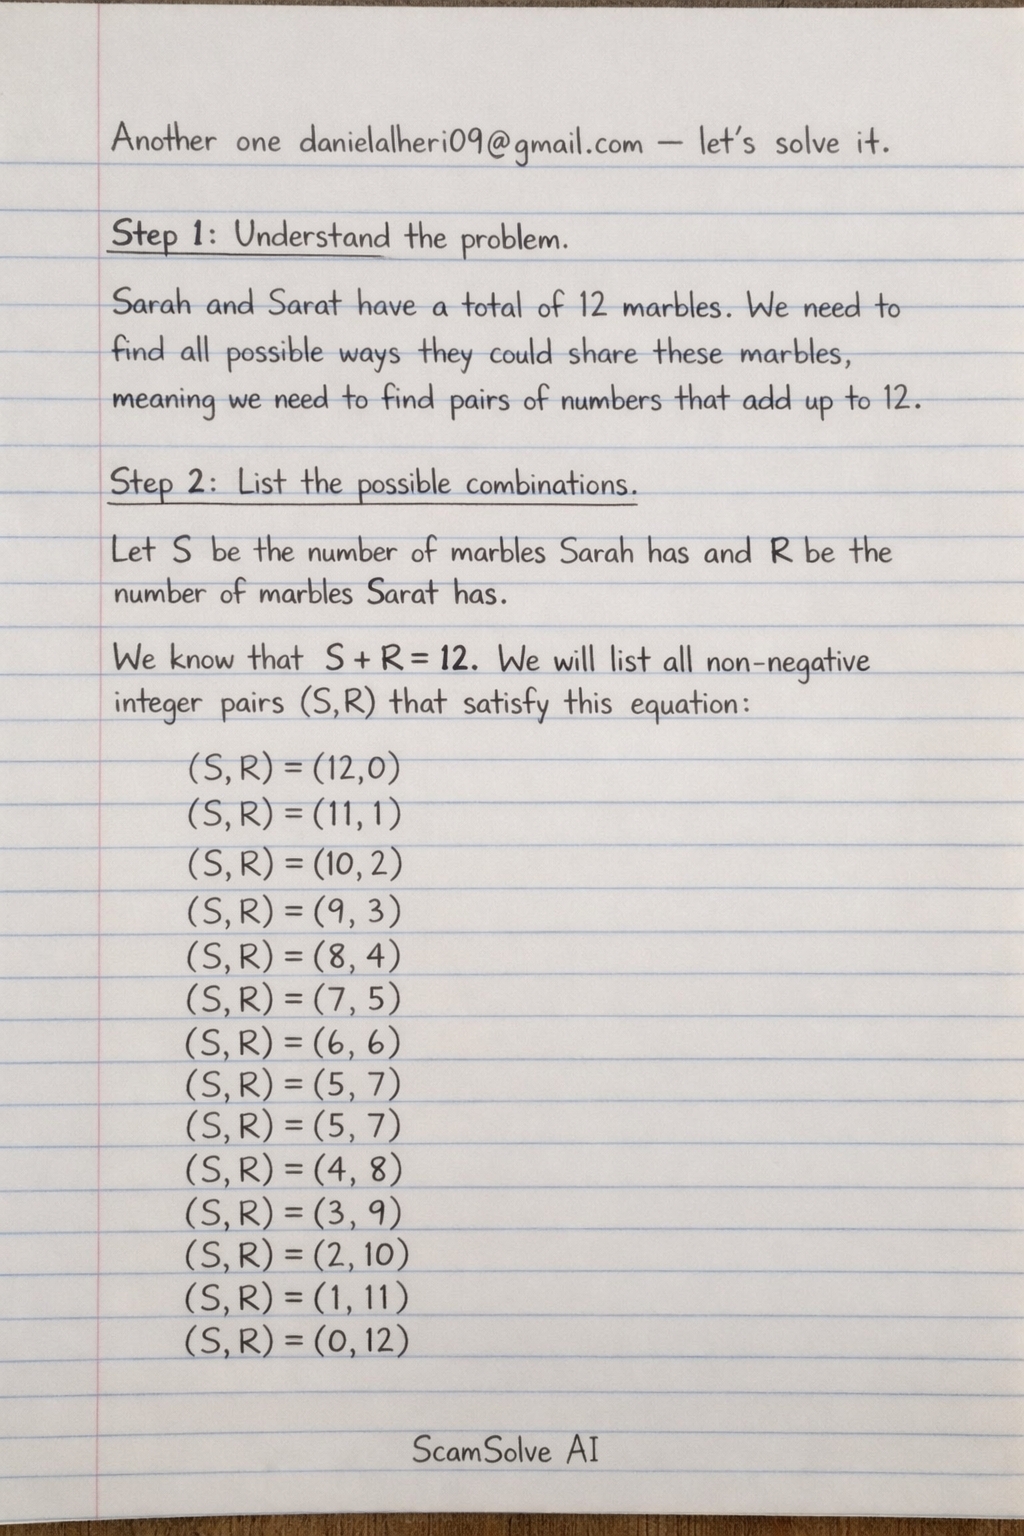 Another one danielalheri09@gmail.com — let's solve it.
Step 1: Understand the problem.
Sarah and Sarat have a total of 12 marbles. We need to
find all possible ways they could share these marbles,
meaning we need to find pairs of numbers that add up to 12.
Step 2: List the possible combinations.
Let S be the number of marbles Sarah has and R be the
number of marbles Sarat has.
We know that S + R = 12. We will list all non-negative
integer pairs (S,R) that satisfy this equation:
(S, R) = (12,0)
(S, R) = (11, 1)
(S, R) = (10, 2)
(S, R) = (9, 3)
(S, R) = (8, 4)
(S, R) = (7, 5)
(S, R) = (6, 6)
(S, R) = (5, 7)
(S, R) = (5, 7)
(S, R) = (4, 8)
(S, R) = (3, 9)
(S, R) = (2, 10)
(S, R) = (1, 11)
(S, R) = (0, 12)
ScamSolve AI